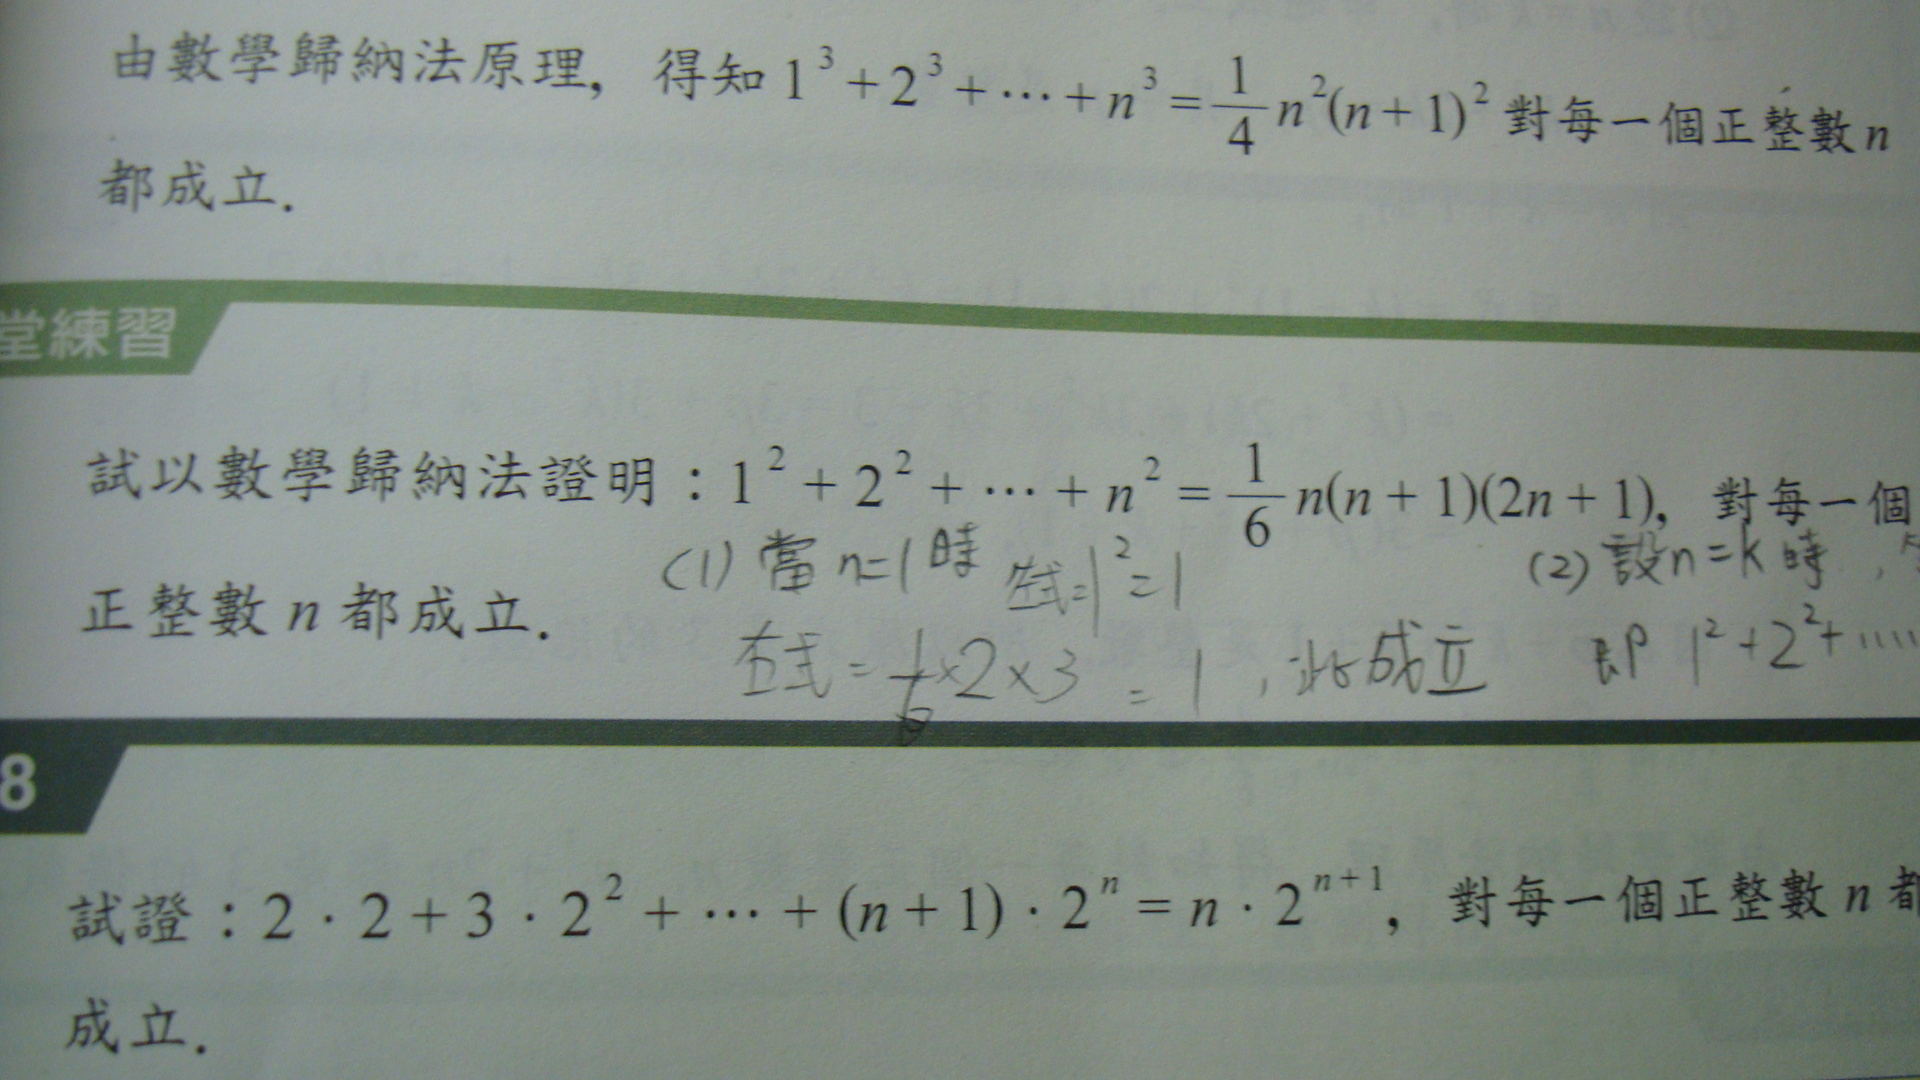 由數學歸納法原理，得知 1³+2³+⋯+n³=\frac{1}{4}n²(n+1)² 對每一個正整數 n
都成立．
堂練習
試以數學歸納法證明：1²+2²+⋯+n²=\frac{1}{6}n(n+1)(2n+1)，對每一個
正整數 n 都成立．
(1) 當 n=1 時 左式=1²=1
右式=\frac{1}{6}×2×3=1，此成立
(2) 設 n=k 時，
即 1²+2²+⋯⋯
8
試證：2·2+3·2²+⋯+(n+1)·2ⁿ=n·2ⁿ⁺¹，對每一個正整數 n 都
成立．